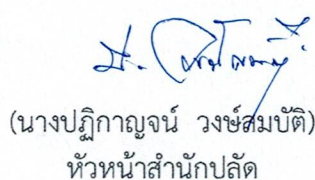 (นางปฏิกาญจน์ วงษ์สมบัติ)
หัวหน้าสำนักปลัด